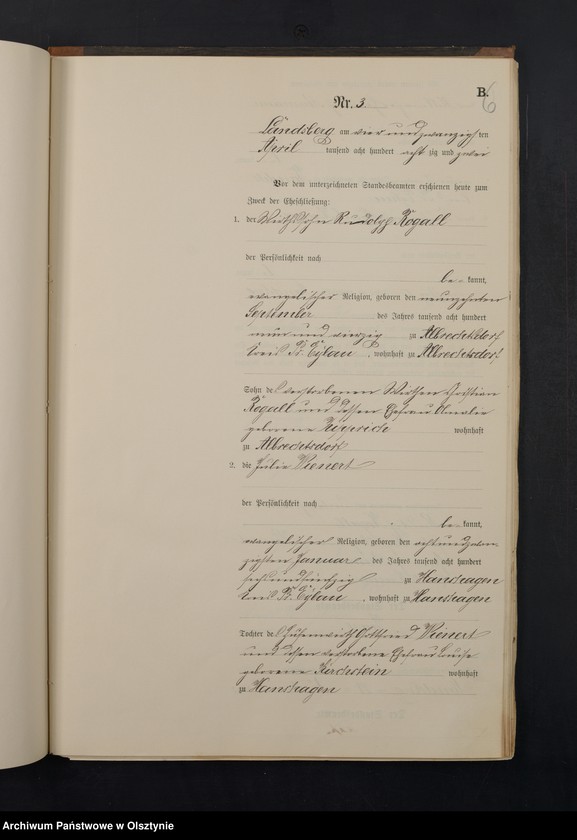 B.
6
Nr. 3
Landsberg am vier und zwanzigsten
April tausend acht hundert acht zig und zwei
Vor dem unterzeichneten Standesbeamten erschienen heute zum
Zweck der Eheschließung:
1. der Wirthssohn Rudolph Rogall
der Persönlichkeit nach
be kannt,
evangelischer Religion, geboren den neunzehnten
des Jahres tausend acht hundert
und vierzig zu Albrechtsdorf
Kreis Pr. Eylau, wohnhaft zu Albrechtsdorf
Sohn des verstorbenen Wirthen Christian
Rogall und dessen Ehefrau Amalie
geborene wohnhaft
zu Albrechtsdorf
2. die Julie Wienert
der Persönlichkeit nach
be kannt,
evangelischer Religion, geboren den acht und zwan-
zigsten Januar des Jahres tausend acht hundert
zu Hanshagen
Kreis Pr. Eylau, wohnhaft zu Hanshagen
Tochter des Hufenwirth Gottfried Wienert
und dessen verstorbene Ehefrau Louise
geborene Kirchstein wohnhaft
zu Hanshagen
Archiwum Państwowe w Olsztynie